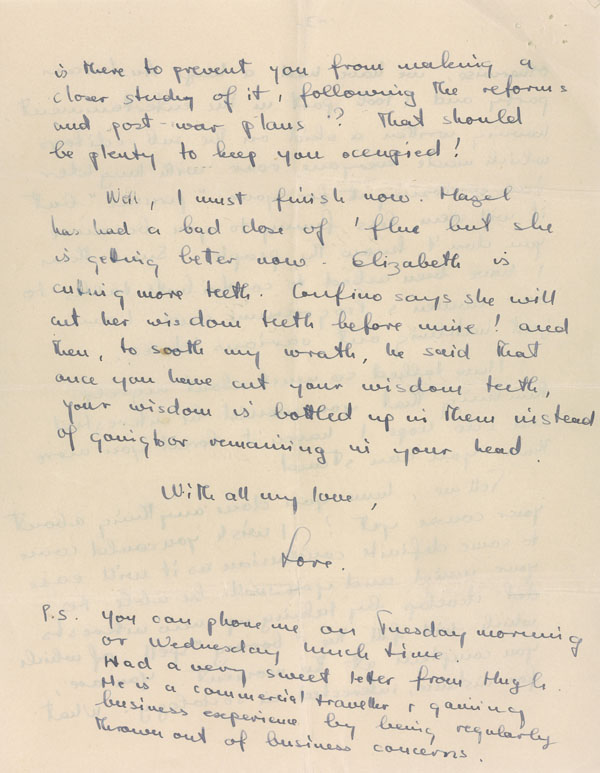 is there to prevent you from making a
closer study of it, following the reforms
and post-war plans? That should
be plenty to keep you occupied!
Well, I must finish now. Hazel
has had a bad dose of 'flue but she
is getting better now. Elizabeth is
cutting more teeth. Confino says she will
cut her wisdom teeth before mine! and
then, to sooth my wrath, he said that
once you have cut your wisdom teeth,
your wisdom is bottled up in them instead
of remaining in your head.
With all my love,
P.S. You can phone me on Tuesday morning
or Wednesday lunch time.
Had a very sweet letter from Hugh.
He is a commercial traveller & gaining
business experience by being regularly
thrown out of business concerns.